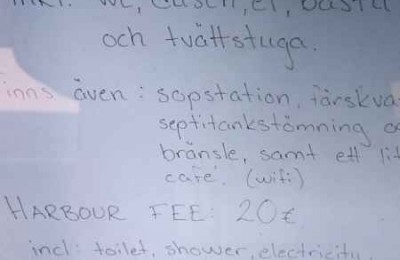 inkl. wc, dusch, el, bastu
och tvättstuga.
inns även: sopstation, färskva
septitankstömning o
bränsle, samt ett lit
café. (wifi)
HARBOUR FEE: 20€
incl: toilet, shower, electricity,